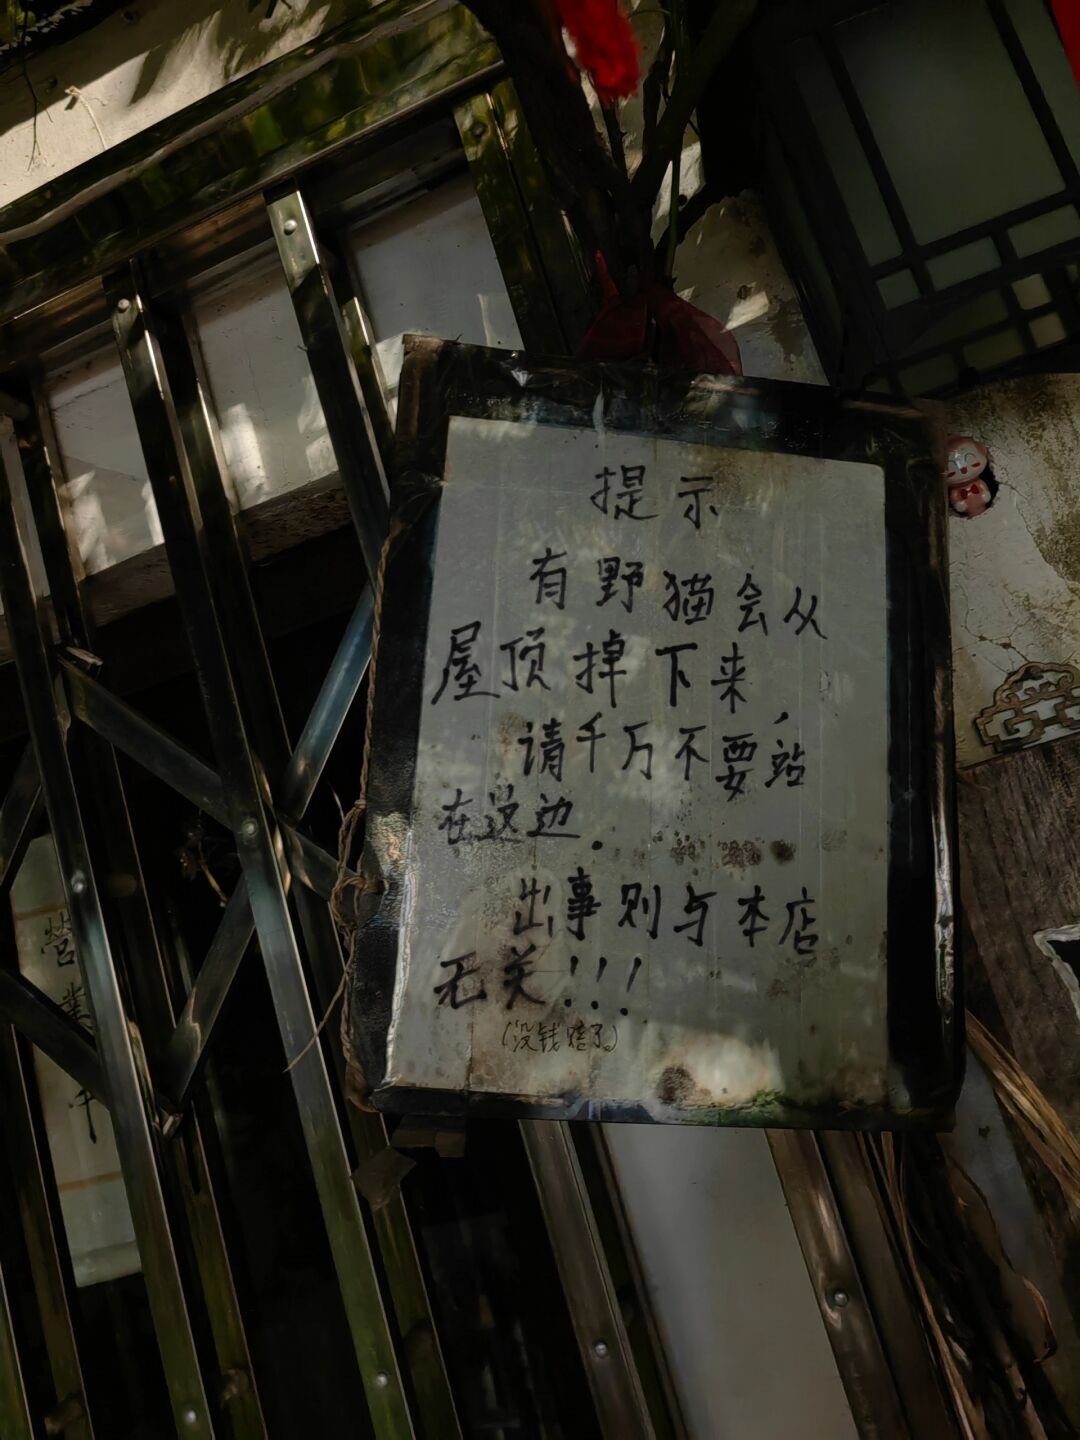 提示
有野猫会从
屋顶掉下来,
请千万不要站
在这边.
出事则与本店
无关!!!
(没钱赔了。)
营業中